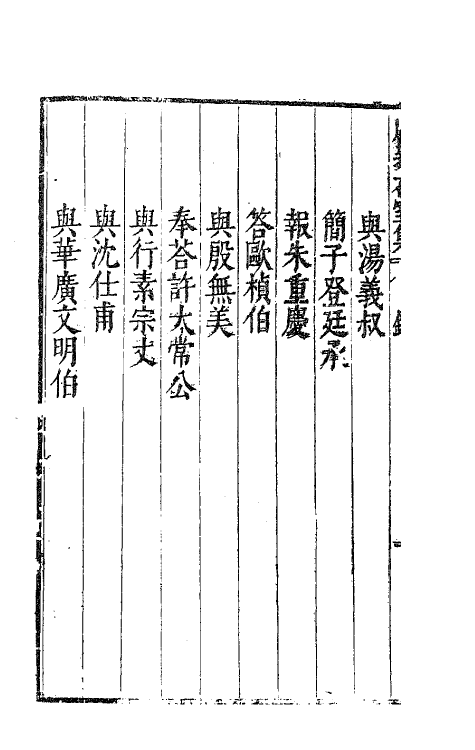 與湯義叔
簡子登廷承
報朱重慶
答歐楨伯
與殷無美
奉荅許太常公
與行素宗丈
與沈仕甫
與華廣文明伯